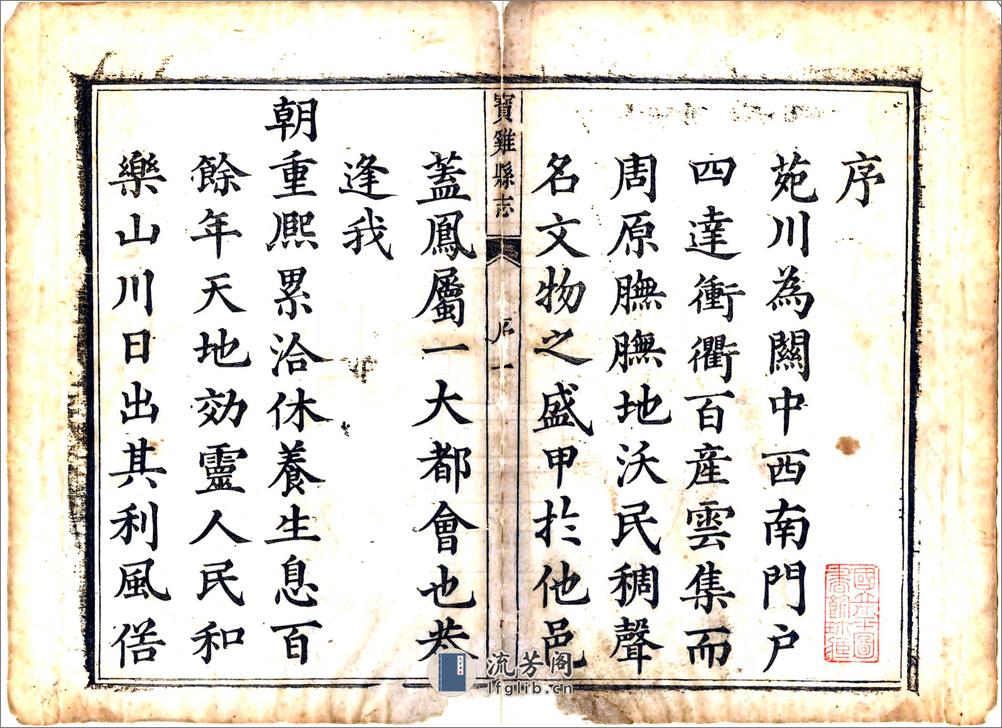 序
苑川為關中西南門户
四達衝衢百産雲集而
周原膴膴地沃民稠聲
名文物之盛甲扵他邑
寶雞縣志 序 一
蓋鳳屬一大都會也恭
逢我
朝重熈累洽休養生息百
餘年天地効靈人民和
樂山川日出其利風俗
國立北平圖
書館珎藏
流芳阁
lfglib.cn